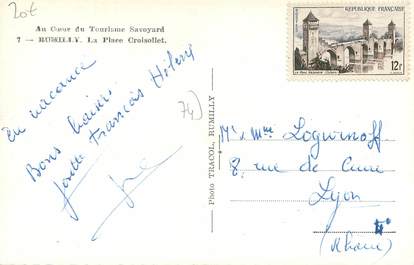 20€
Au Cœur du Tourisme Savoyard
7 — RUMILLY. La Place Croisollet.
En vacance
Bons baisers
Joëlle François Hélène
74)
Photo TRACOL, RUMILLY
REPUBLIQUE FRANÇAISE
Le Pont Valentré Cahors
12F
Mr Mme Logwinoff
8 rue de Cuire
Lyon
4e
(Rhône)